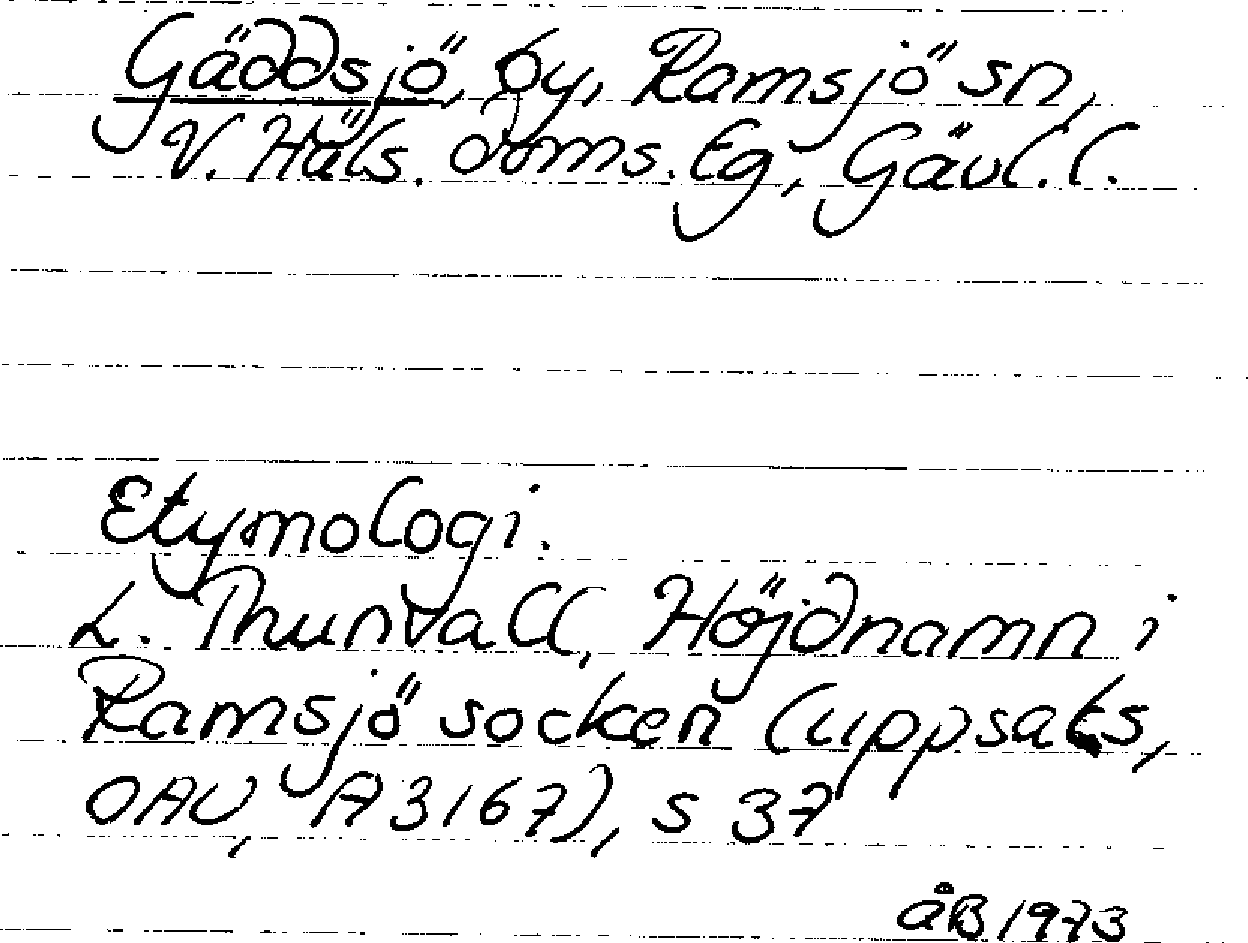 Gäddsjö, by, Ramsjö sn,
V. Häls. doms. tg, Gävl. l.
Etymologi.
L. Thunvall, Höjdnamn i
Ramsjö socken (uppsats,
OAU, A3167), s 37
ÅB 1973